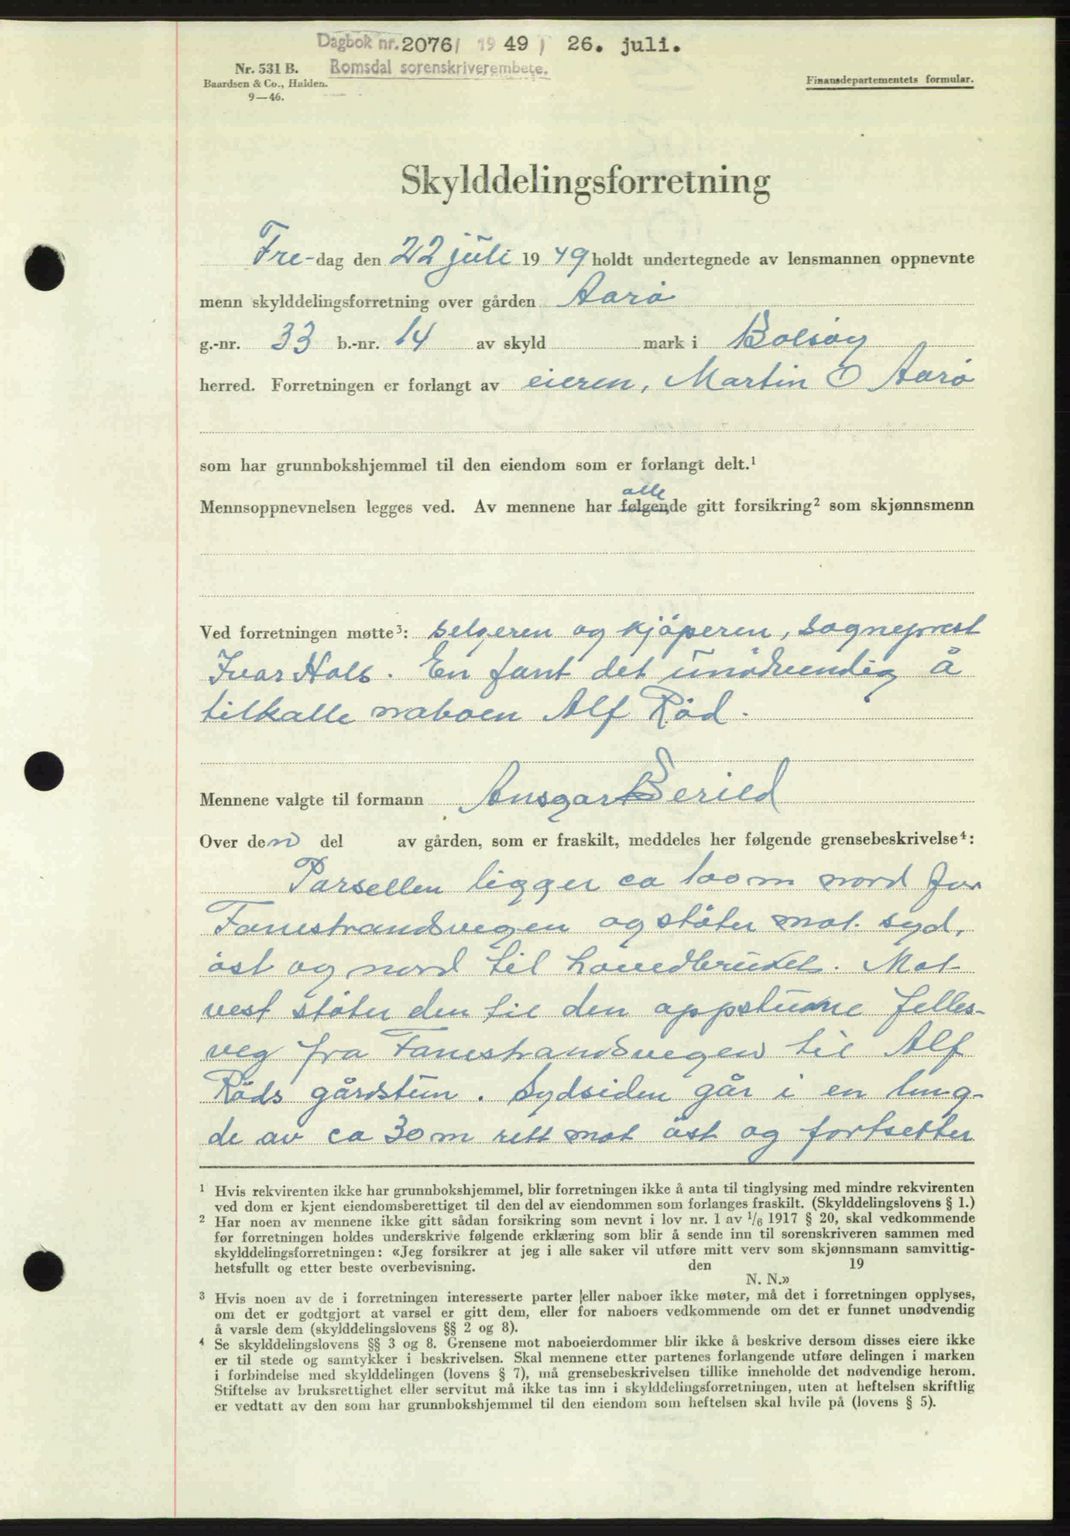 Dagbok nr. 2076/ 1949) 26. juli.
Romsdal sorenskriverembete.
Nr. 531 B.
Baardsen & Co., Halden.
9—46.
Finansdepartementets formular.
Skylddelingsforretning
Fre-dag den 22 juli 1949 holdt undertegnede av lensmannen oppnevnte
menn skylddelingsforretning over gården Aarø
g.-nr. 33 b.-nr. 14 av skyld mark i Bolsøy
herred. Forretningen er forlangt av eieren, Martin O Aarø
som har grunnbokshjemmel til den eiendom som er forlangt delt.¹
alle
Mennsoppnevnelsen legges ved. Av mennene har følgende gitt forsikring² som skjønnsmenn
Ved forretningen møtte³: selgeren og kjöperen, sogneprest
Ivar Hals. En fant det unödvendig å
tilkalle naboen Alf Röd.
Mennene valgte til formann Ansgar Berild
Over den del av gården, som er fraskilt, meddeles her følgende grensebeskrivelse⁴:
Parsellen ligger ca 100 m nord for
Fanestrandsvegen og stöter mot syd,
öst og nord til hovedbruket. Mot
vest stöter den til den oppstukne felles-
veg fra Fanestrandsvegen til Alf
Röds gårdstun. Sydsiden går i en leng-
de av ca 30 m rett mot öst og fortsetter
¹ Hvis rekvirenten ikke har grunnbokshjemmel, blir forretningen ikke å anta til tinglysing med mindre rekvirenten
ved dom er kjent eiendomsberettiget til den del av eiendommen som forlanges fraskilt. (Skylddelingslovens § 1.)
² Har noen av mennene ikke gitt sådan forsikring som nevnt i lov nr. 1 av 1/6 1917 § 20, skal vedkommende
før forretningen holdes underskrive følgende erklæring som blir å sende inn til sorenskriveren sammen med
skylddelingsforretningen: «Jeg forsikrer at jeg i alle saker vil utføre mitt verv som skjønnsmann samvittig-
hetsfullt og etter beste overbevisning. den 19
N. N.»
³ Hvis noen av de i forretningen interesserte parter eller naboer ikke møter, må det i forretningen opplyses,
om det er godtgjort at varsel er gitt dem, eller for naboers vedkommende om det er funnet unødvendig
å varsle dem (skylddelingslovens §§ 2 og 8).
⁴ Se skylddelingslovens §§ 3 og 8. Grensene mot naboeierdommer blir ikke å beskrive dersom disses eiere ikke
er til stede og samtykker i beskrivelsen. Skal mennene etter partenes forlangende utføre delingen i marken
i forbindelse med skylddelingen (lovens § 7), må grensebeskrivelsen tillike inneholde det nødvendige herom.
Stiftelse av bruksrettighet eller servitut må ikke tas inn i skylddelingsforretningen, uten at heftelsen skriftlig
er vedtatt av den som har grunnbokshjemmel til den eiendom som heftelsen skal hvile på (lovens § 5).